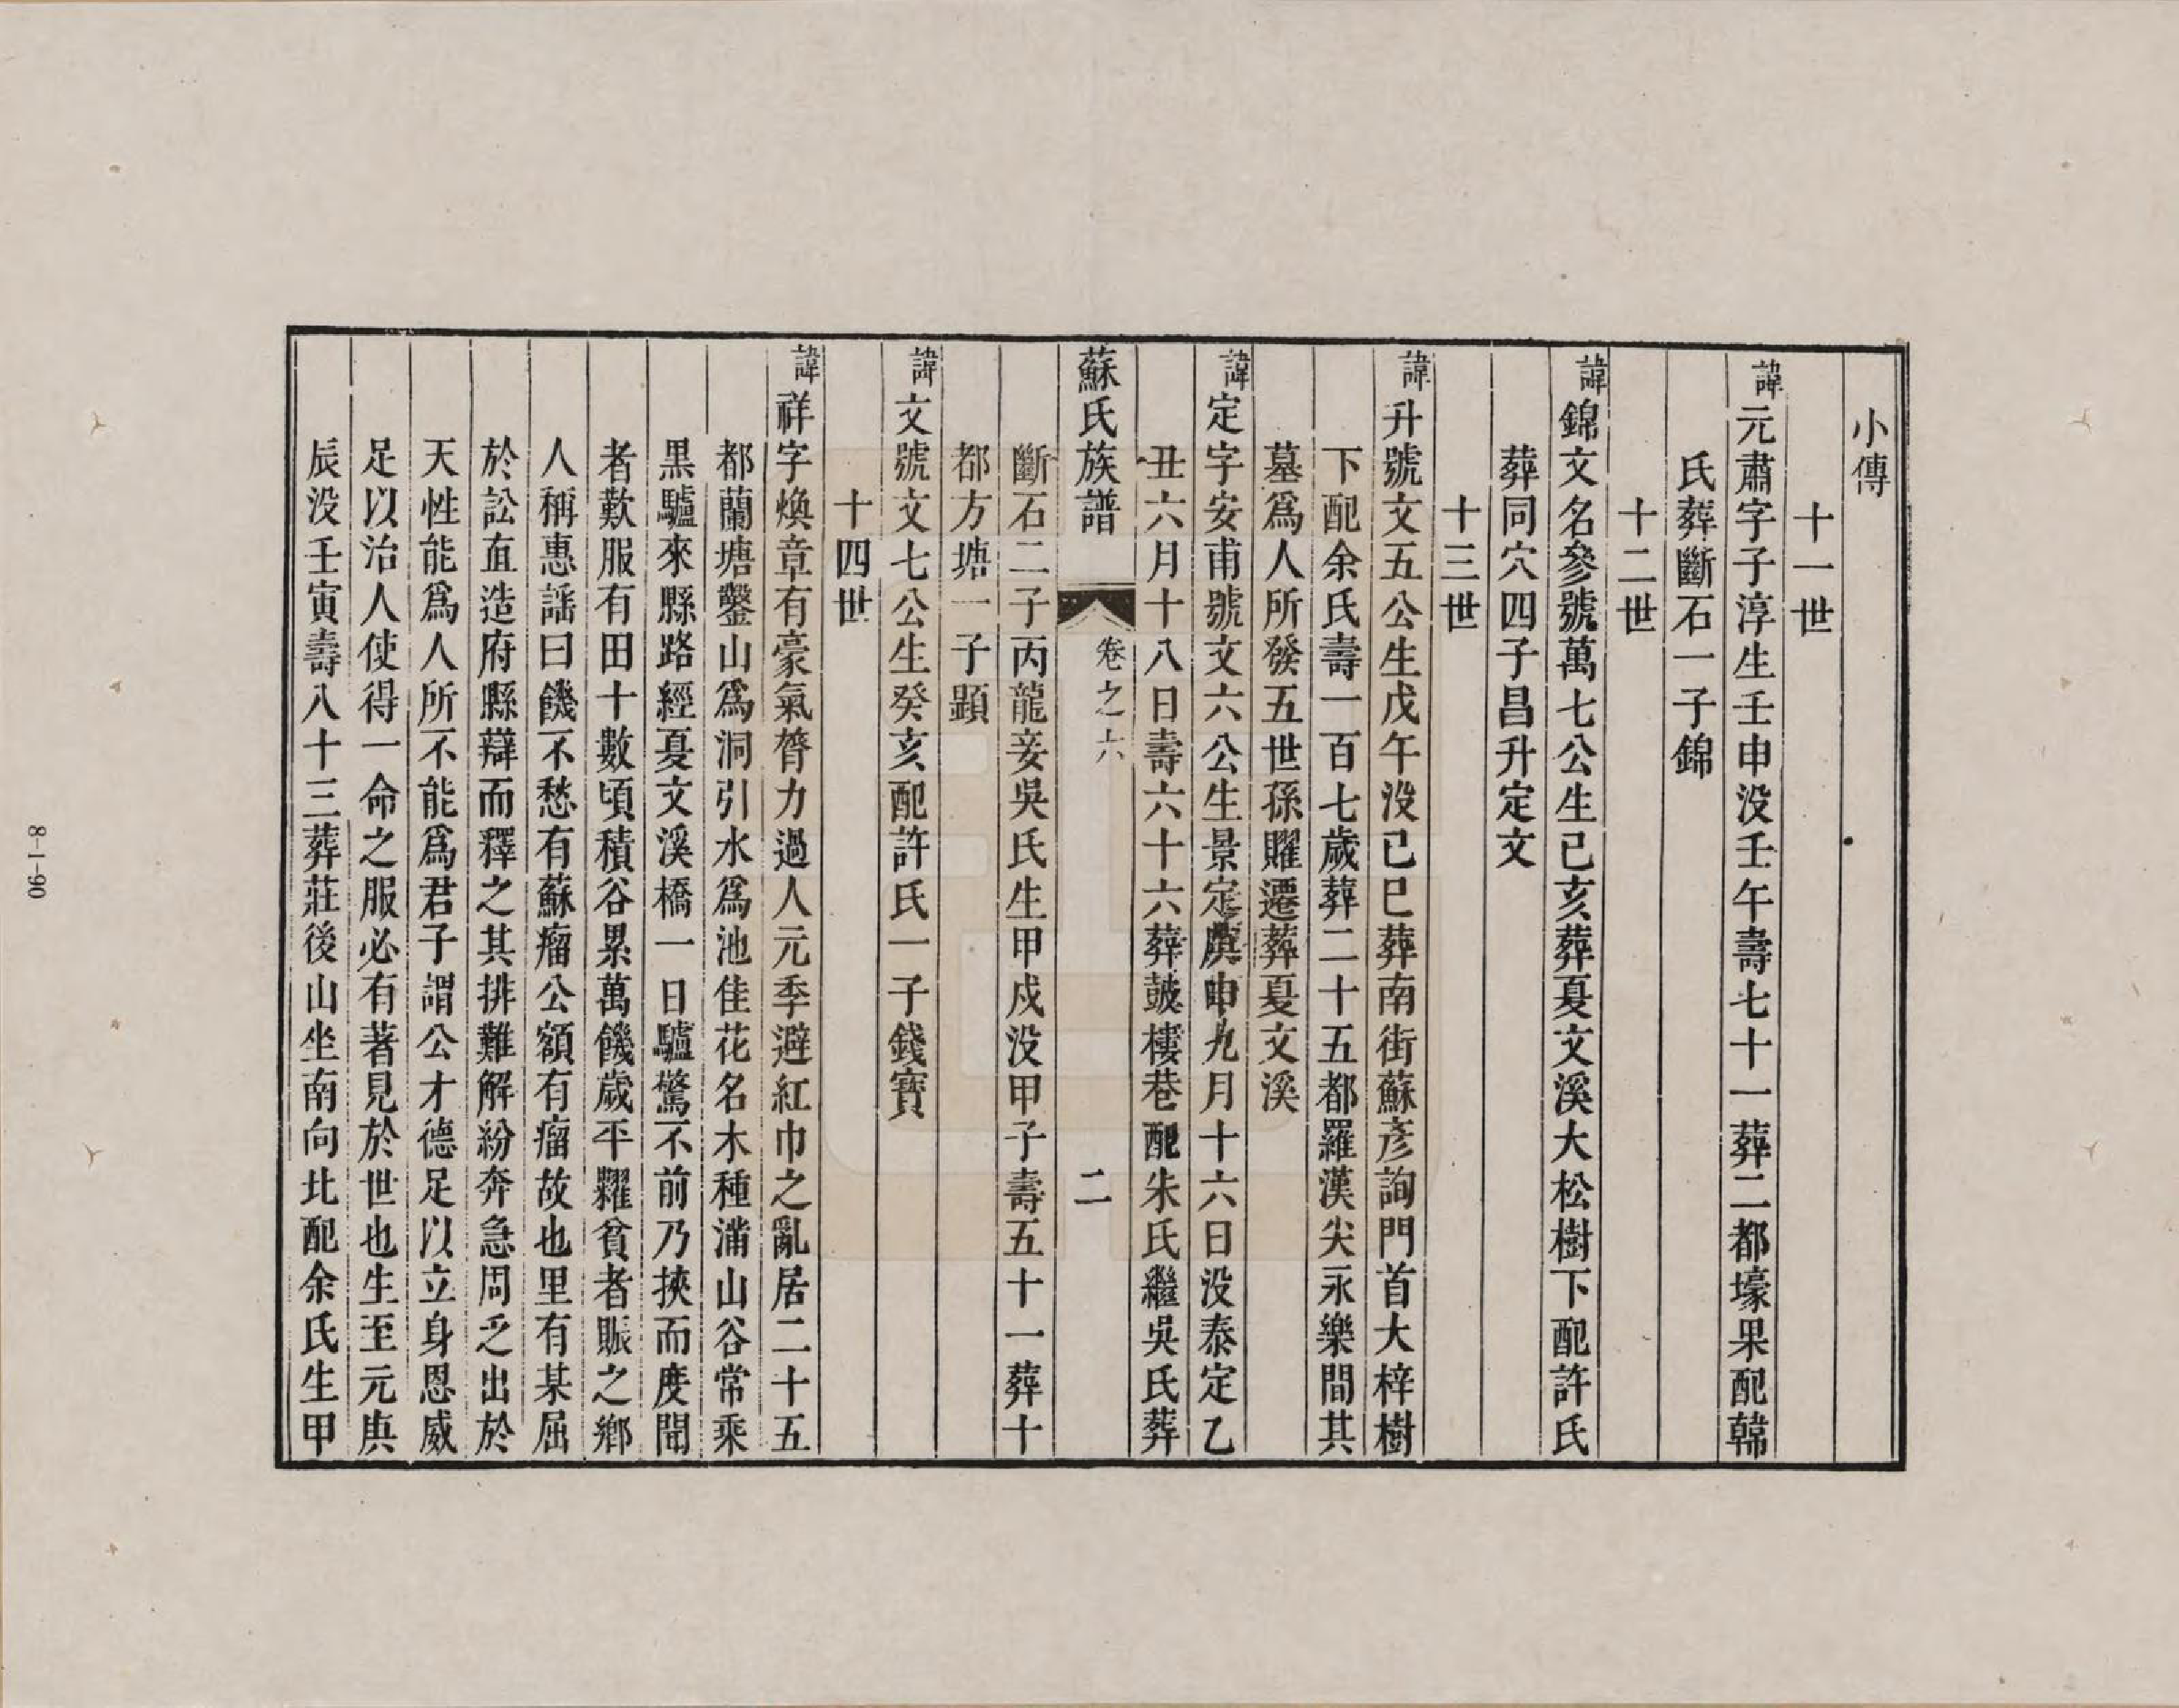 小傳
十一世
諱元肅字子淳生壬申没壬午壽七十一葬二都壕果配韓
氏葬斷石一子錦
十二世
諱錦文名參號萬七公生己亥葬夏文溪大松樹下配許氏
葬同穴四子昌升定文
十三世
諱升號文五公生戊午没己巳葬南街蘇彦詢門首大梓樹
下配余氏壽一百七歲葬二十五都羅漢尖永樂間其
墓爲人所發五世孫矅遷葬夏文溪
諱定字安甫號文六公生景定庚申九月十六日没泰定乙
丑六月十八日壽六十六葬鼓樓巷配朱氏繼吳氏葬
斷石二子丙龍妾吳氏生甲戍没甲子壽五十一葬十
都方塘一子顕
蘇氏族譜 卷之六 二
諱文號文七公生癸亥配許氏一子錢寶
十四世
諱祥字煥章有豪氣膂力過人元季避紅巾之亂居二十五
都蘭塘鑿山爲洞引水爲池佳花名木種滿山谷常乘
黒驢來縣路經夏文溪橋一日驢驚不前乃挾而度聞
者歎服有田十數頃積谷累萬饑歲平糶貧者賑之鄉
人稱惠謡曰饑不愁有蘇瘤公額有瘤故也里有某屈
於訟直造府縣辯而釋之其排難解紛奔急周乏出於
天性能爲人所不能爲君子謂公才德足以立身恩威
足以治人使得一命之服必有著見於世也生至元庚
辰没壬寅壽八十三葬莊後山坐南向北配余氏生甲
8-1-90